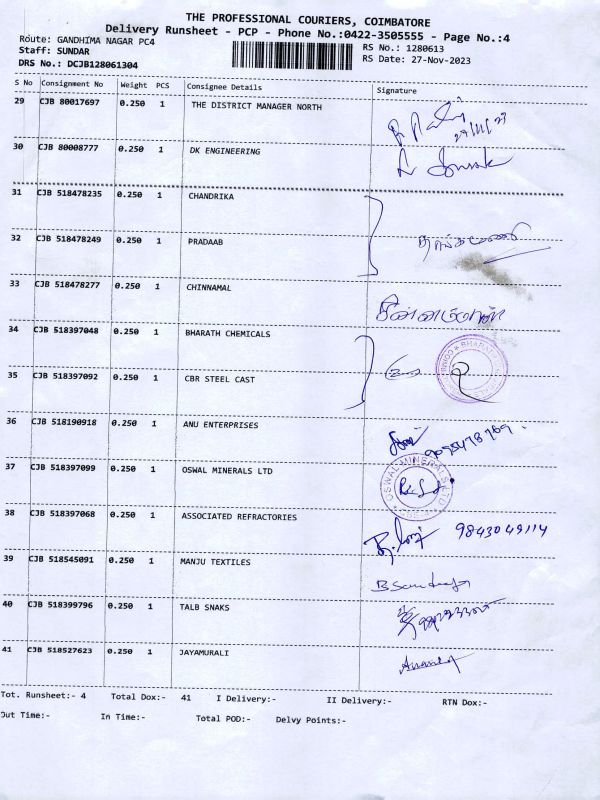 THE PROFESSIONAL COURIERS, COIMBATORE
Delivery Runsheet - PCP - Phone No.:0422-3505555 - Page No.:4
Route: GANDHIMA NAGAR PC4 RS No.: 1280613
Staff: SUNDAR RS Date: 27-Nov-2023
DRS No.: DCJB128061304
S No Consignment No Weight PCS Consignee Details Signature
29 CJB 80017697 0.250 1 THE DISTRICT MANAGER NORTH
27/11/23
30 CJB 80008777 0.250 1 DK ENGINEERING
31 CJB 518478235 0.250 1 CHANDRIKA
32 CJB 518478249 0.250 1 PRADAAB
33 CJB 518478277 0.250 1 CHINNAMAL
சின்னம்மாள்
34 CJB 518397048 0.250 1 BHARATH CHEMICALS
35 CJB 518397092 0.250 1 CBR STEEL CAST
36 CJB 518190918 0.250 1 ANU ENTERPRISES
37 CJB 518397099 0.250 1 OSWAL MINERALS LTD
OSWAL MINERALS LTD
38 CJB 518397068 0.250 1 ASSOCIATED REFRACTORIES
9843049114
39 CJB 518545091 0.250 1 MANJU TEXTILES
40 CJB 518399796 0.250 1 TALB SNAKS
41 CJB 518527623 0.250 1 JAYAMURALI
Tot. Runsheet:- 4 Total Dox:- 41 I Delivery:- II Delivery:- RTN Dox:-
Out Time:- In Time:- Total POD:- Delvy Points:-